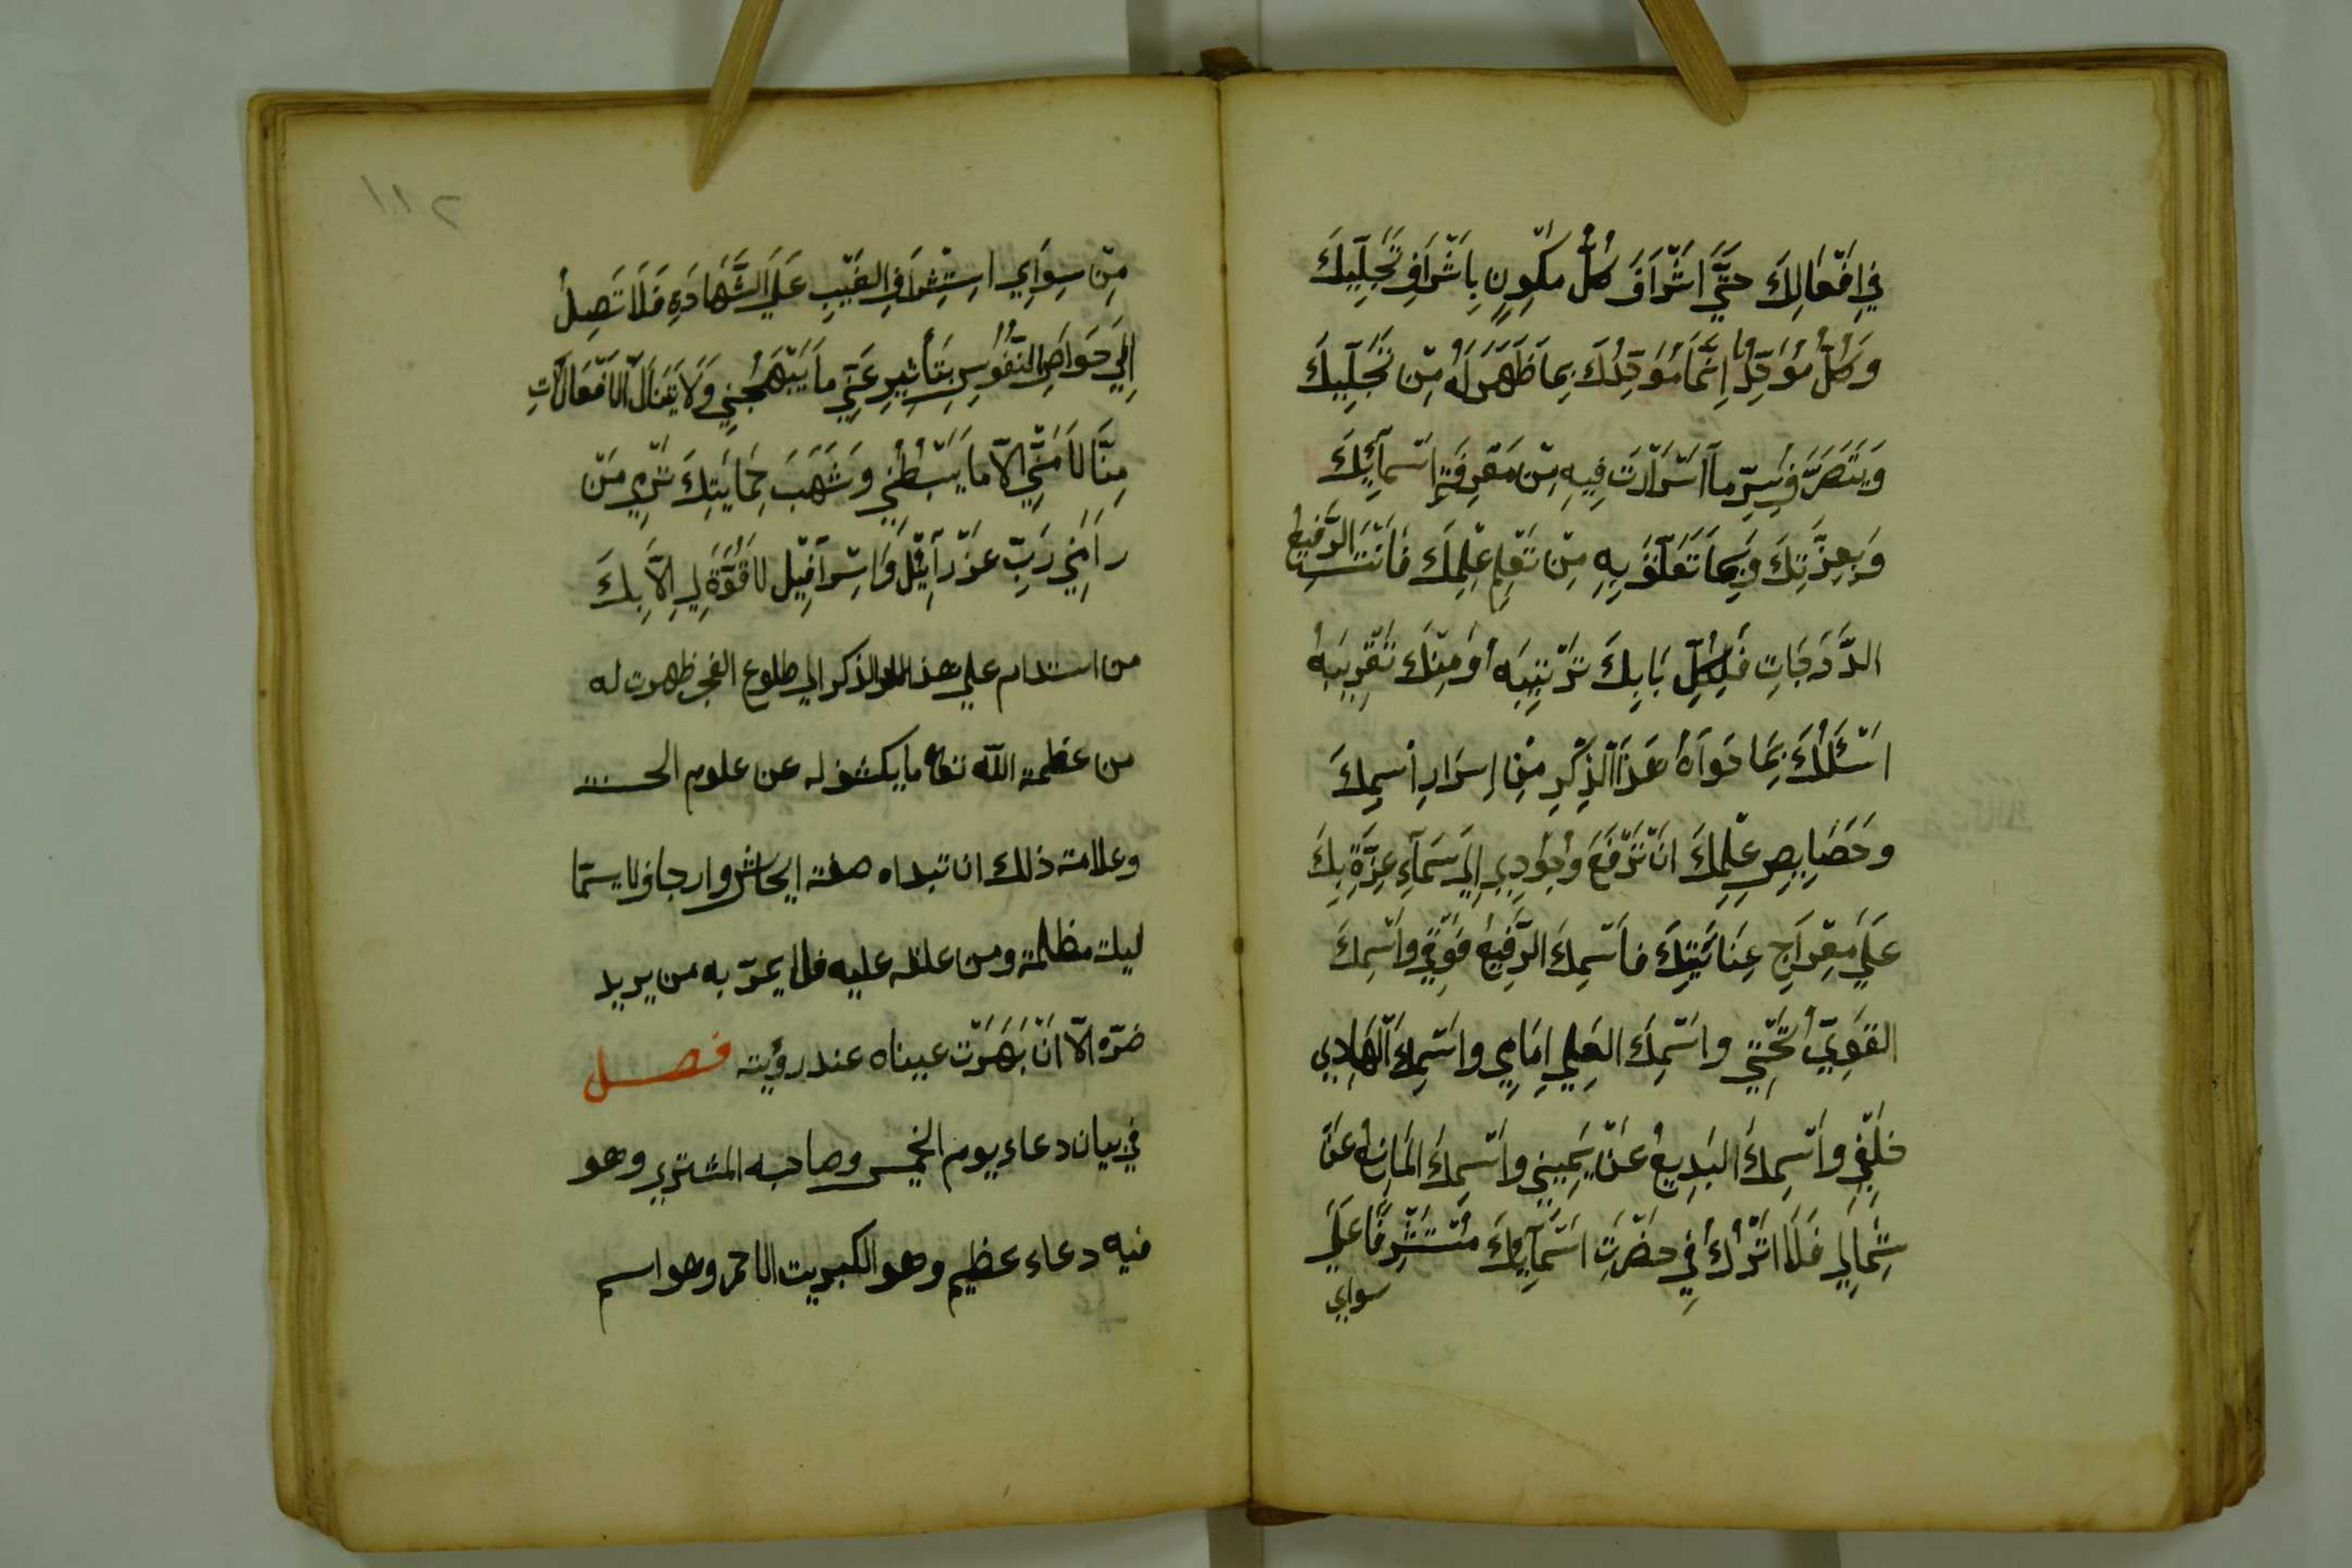 في افعالك حتي اشراق كل مكون باشراق تجليك
وكل مؤحد انما مؤحدك بما ظهر له من تجليك
ويتصرف بسر ما اسرارت فيه من معرفة اسمآئك
وبعزتك وبما تعلق به من تعلم علمك فانت الرفيع
الدرجات فلكل بابك ترتيبه أو منك تقريبه
اسئلك بما حواه هذا الذكر من اسرار أسمك
وخصايص علمك ان ترفع وجودي الي سمآء عزة بك
علي معراج عنائيتك فاسمك الرفيع فوقي واسمك
القوي تحتي واسمك العلي امامي واسمك الهادي
خلفي واسمك البديع عن يميني واسمك المانع عن
شمالي فلا اترك في حضرت اسمآئك متشرفا علي
سواي
١١٢
من سواي استشراف الغيب علي الشهاده فلا تصل
الي حواص النفوس بتأثير عني ما يبهجني ولا يتنال الافعالات
منا لا مني الا ما يبسطني وشهب حمايتك ترمي من
راني رب عزرآئيل واسرآفيل لا قوة لي الا بك
من استدام علي هذا الذكر الي طلوع الفجر ظهرت له
من عظمة الله تعا ما يكشف له عن علوم الحسنت
وعلامة ذلك ان تبداه صفة ايحاش وارجاف لا سيما
ليلة مظلمة ومن علقه عليه فلا يمر به من يريد
ضره الا ان بهرت عيناه عند رؤيته فصل
في بيان دعاء يوم الخميس وصاحبه المشتري وهو
فيه دعاء عظيم وهو الكبريت الاحمر وهو اسم